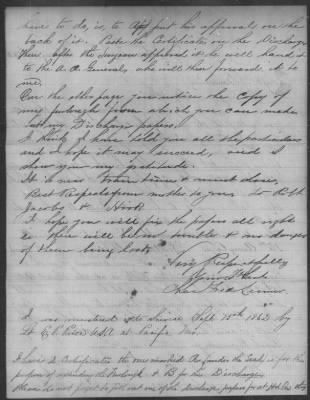 have to do, is to put his approval on the
back of it. Paste the Certificates on the Discharge
then after the Surgeon approved it he will hand it
to the A. A. General, who will then forward it to
me.
On the other page you notice the Copy of
my furlough from which you can make
out my Discharge papers.
I think I have told you all the particulars
and I hope I may succeed, and I
show you my gratitude.
It is now train time & must close,
Best respects from mother to you to
Jacobs & Hook
I hope you will fix the papers all right
then will be no trouble & no danger
of them being lost.
Very Respectfully
Your Friend
I was mustered into Service Feb 15th 1862 by
Lt. at Pacific Mo.
I have 2 Certificates the one marked A (under the Seal) is for the
purpose of extending the Furlough & B for the Discharge.
Please do not forget to fill out one of the Discharge papers for